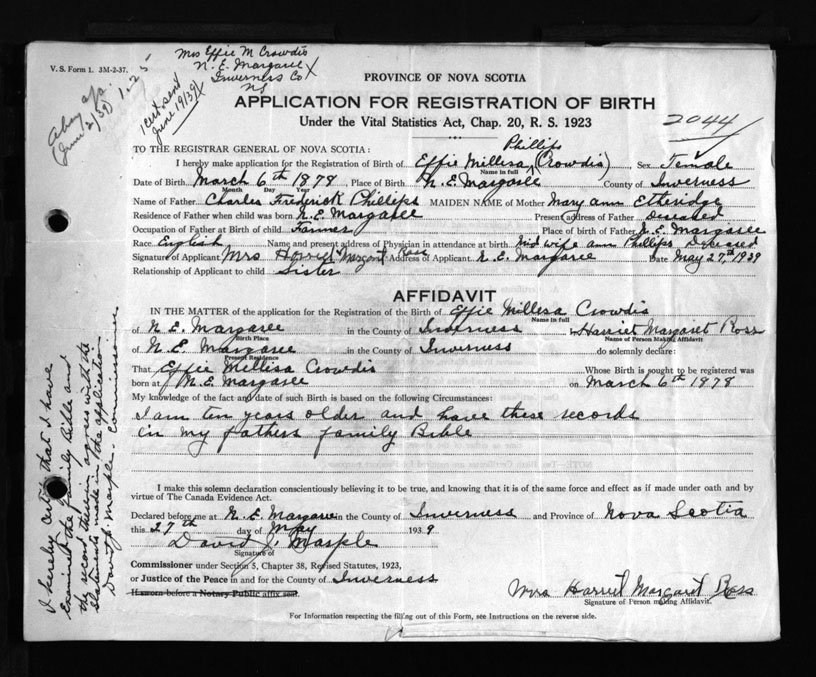 V. S. Form 1. 3M-2-37.
Mrs Effie M Crowdis
N. E. Margaree
Inverness Co
NS
X
(June 2/39) 1.25
1 Cert sent
June 19/39
PROVINCE OF NOVA SCOTIA
APPLICATION FOR REGISTRATION OF BIRTH
2044
Under the Vital Statistics Act, Chap. 20, R. S. 1923
TO THE REGISTRAR GENERAL OF NOVA SCOTIA:
Phillips
I hereby make application for the Registration of Birth of Effie Millisa (Crowdis) Sex Female
Name in full
Date of Birth March 6th 1878 Place of Birth N. E. Margaree County of Inverness
Month Day Year
Name of Father Charles Frederick Phillips MAIDEN NAME of Mother Mary Ann Etheridge
Residence of Father when child was born N. E. Margaree Present address of Father Diseased
Occupation of Father at Birth of child Farmer Place of birth of Father N. E. Margaree
Race English Name and present address of Physician in attendance at birth Mid wife Ann Phillips Deceased
Signature of Applicant Mrs Harriet Margaret Ross Address of Applicant N. E. Margaree Date May 27th 1939
Relationship of Applicant to child Sister
AFFIDAVIT
IN THE MATTER of the application for the Registration of the Birth of Effie Millisa Crowdis
Name in full
of N. E. Margaree in the County of Inverness I, Harriet Margaret Ross
Birth Place Name of Person Making Affidavit
of N. E. Margaree in the County of Inverness do solemnly declare:
Present Residence
That Effie Millisa Crowdis Whose Birth is sought to be registered was
born at N. E. Margaree on March 6th 1878
My knowledge of the fact and date of such Birth is based on the following Circumstances:
I am ten years older and have these records
in my fathers family Bible
I make this solemn declaration conscientiously believing it to be true, and knowing that it is of the same force and effect as if made under oath and by
virtue of The Canada Evidence Act.
Declared before me at N. E. Margaree in the County of Inverness and Province of Nova Scotia
this 27th day of May 1939
David J. Marple
Signature of
Commissioner under Section 5, Chapter 38, Revised Statutes, 1923,
or Justice of the Peace in and for the County of Inverness
Mrs Harriet Margaret Ross
Signature of Person making Affidavit.
For Information respecting the filling out of this Form, see Instructions on the reverse side.
I hereby certify that I have
examined the Family Bible and
the record therein agrees with the
statements made in the application
David J. Marple. Commissioner